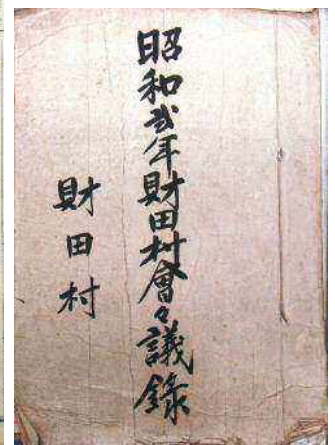 昭和弐年財田村會々議録
財田村